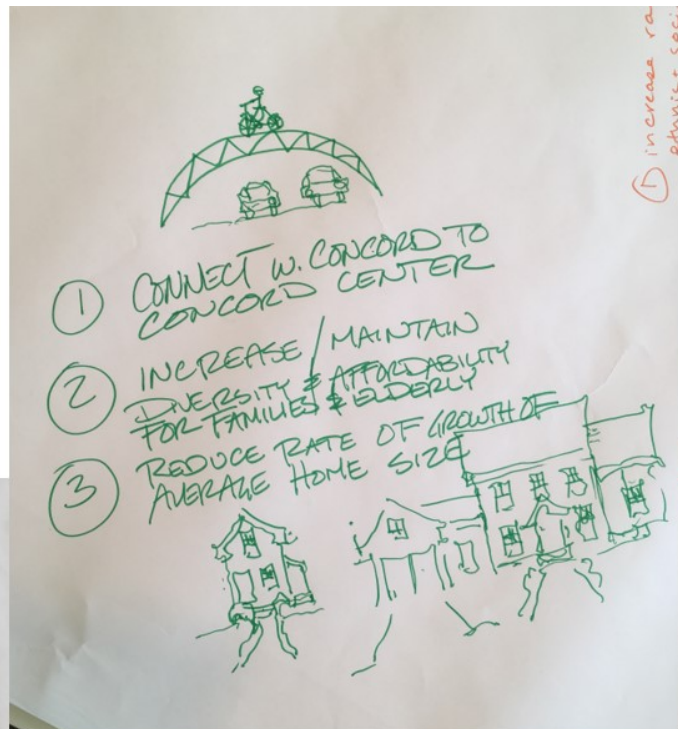 ① CONNECT W. CONCORD TO
CONCORD CENTER
② INCREASE / MAINTAIN
DIVERSITY & AFFORDABILITY
FOR FAMILIES & ELDERLY
③ REDUCE RATE OF GROWTH OF
AVERAGE HOME SIZE
① increase ra
ethnic + soci